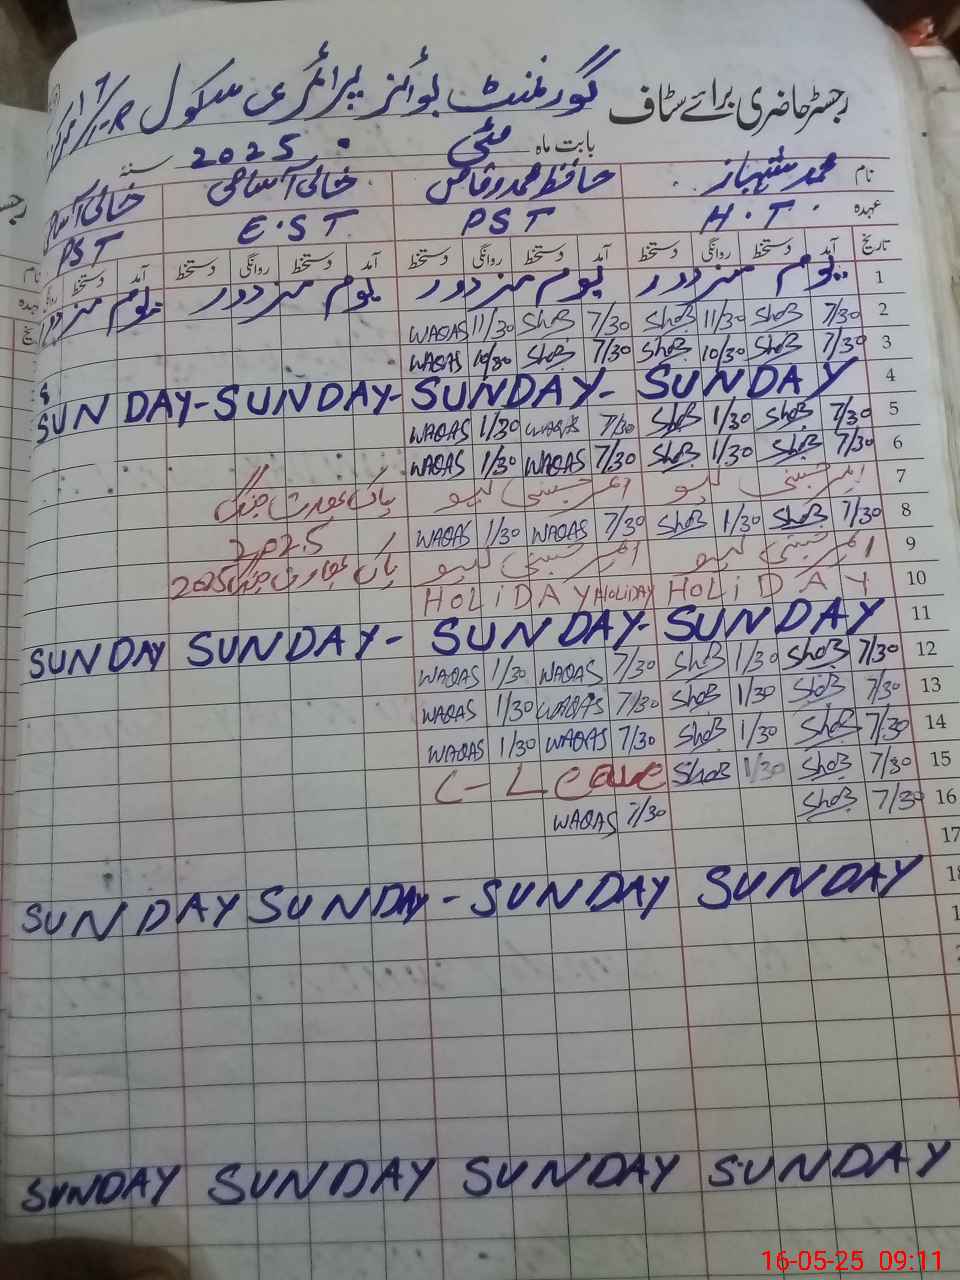 رجسٹر حاضری برائے سٹاف گورنمنٹ بوائز پرائمری سکول
بابت ماہ مئی 2025 سنہ
نام محمد شہباز حافظ محمد وقاص خالی آسامی خالی آسامی
عہدہ H.T. PST E.ST PST
تاریخ آمد دستخط روانگی دستخط آمد دستخط روانگی دستخط آمد دستخط روانگی دستخط آمد دستخط
1 یوم مزدور یوم مزدور یوم مزدور یوم مزدور
2 7/30 ShaB 11/30 ShaB 7/30 ShaB 11/30 WAQAS
3 7/30 ShaB 10/30 ShaB 7/30 ShaB 10/30 WAQAS
4 SUNDAY SUNDAY- SUNDAY- SUNDAY-
5 7/30 ShaB 1/30 ShaB 7/30 WAQAS 1/30 WAQAS
6 7/30 ShaB 1/30 ShaB 7/30 WAQAS 1/30 WAQAS
7 ایمرجنسی لیو ایمرجنسی لیو پاک بھارت جنگ
8 7/30 ShaB 1/30 ShaB 7/30 WAQAS 1/30 WAQAS 2025
9 ایمرجنسی لیو ایمرجنسی لیو پاک بھارت جنگ 2025
10 HOLiDAY HOLiDAY HOLIDAY
11 SUNDAY SUNDAY- SUNDAY- SUNDAY
12 7/30 ShaB 1/30 ShaB 7/30 WAQAS 1/30 WAQAS
13 7/30 ShaB 1/30 ShaB 7/30 WAQAS 1/30 WAQAS
14 7/30 ShaB 1/30 ShaB 7/30 WAQAS 1/30 WAQAS
15 7/30 ShaB 1/30 ShaB C-Leave
16 7/30 ShaB 7/30 WAQAS
17
18 SUNDAY SUNDAY SUNDAY- SUNDAY
SUNDAY SUNDAY SUNDAY SUNDAY
16-05-25 09:11